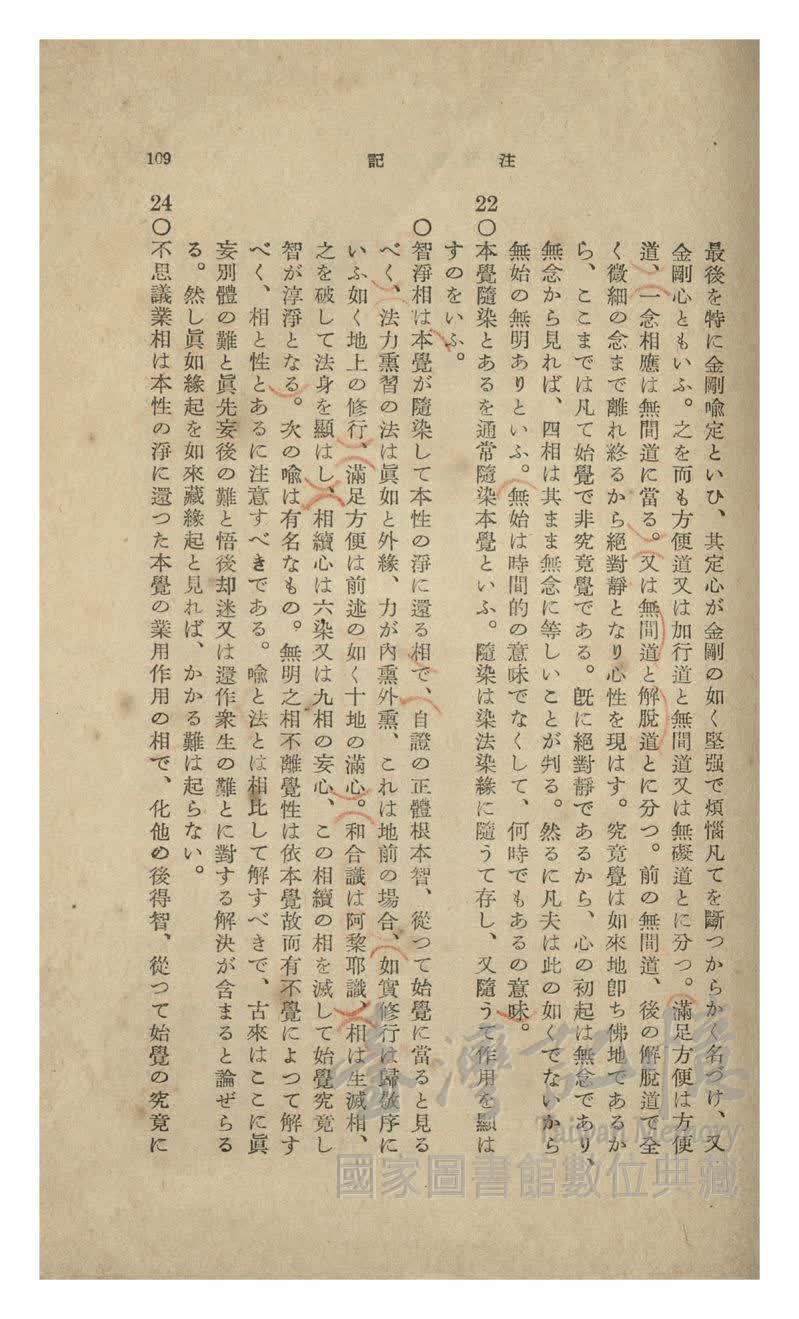 注記
109
最後を特に金剛喩定といひ、其定心が金剛の如く堅强で煩惱凡てを斷つからかく名づけ、又
金剛心ともいふ。之を而も方便道又は加行道と無間道又は無礙道とに分つ。滿足方便は方便
道、一念相應は無間道に當る。又は無間道と解脫道とに分つ。前の無間道、後の解脫道で全
く微細の念まで離れ終るから絕對靜となり心性を現はす。究竟覺は如來地卽ち佛地であるか
ら、ここまでは凡て始覺で非究竟覺である。旣に絕對靜であるから、心の初起は無念であり、
無念から見れば、四相は其まま無念に等しいことが判る。然るに凡夫は此の如くでないから
無始の無明ありといふ。無始は時間的の意味でなくして、何時でもあるの意味。
22〇本覺隨染とあるを通常隨染本覺といふ。隨染は染法染緣に隨うて存し、又隨うて作用を顯は
すのをいふ。
〇智淨相は本覺が隨染して本性の淨に還る相で、自證の正體根本智、從つて始覺に當ると見る
べく、法力熏習の法は眞如と外緣、力が內熏外熏、これは地前の場合、如實修行は歸敬序に
いふ如く地上の修行、滿足方便は前述の如く十地の滿心。和合識は阿黎耶識、相は生滅相、
之を破して法身を顯はし、相續心は六染又は九相の妄心、この相續の相を滅して始覺究竟し
智が淳淨となる。次の喩は有名なもの。無明之相不離覺性は依本覺故而有不覺によつて解す
べく、相と性とあるに注意すべきである。喩と法とは相比して解すべきで、古來はここに眞
妄別體の難と眞先妄後の難と悟後却迷又は還作衆生の難とに對する解決が含まると論ぜらる
る。然し眞如緣起を如來藏緣起と見れば、かかる難は起らない。
24〇不思議業相は本性の淨に還つた本覺の業用作用の相で、化他の後得智、從つて始覺の究竟に
臺灣記憶
Taiwan Memory
國家圖書館數位典藏